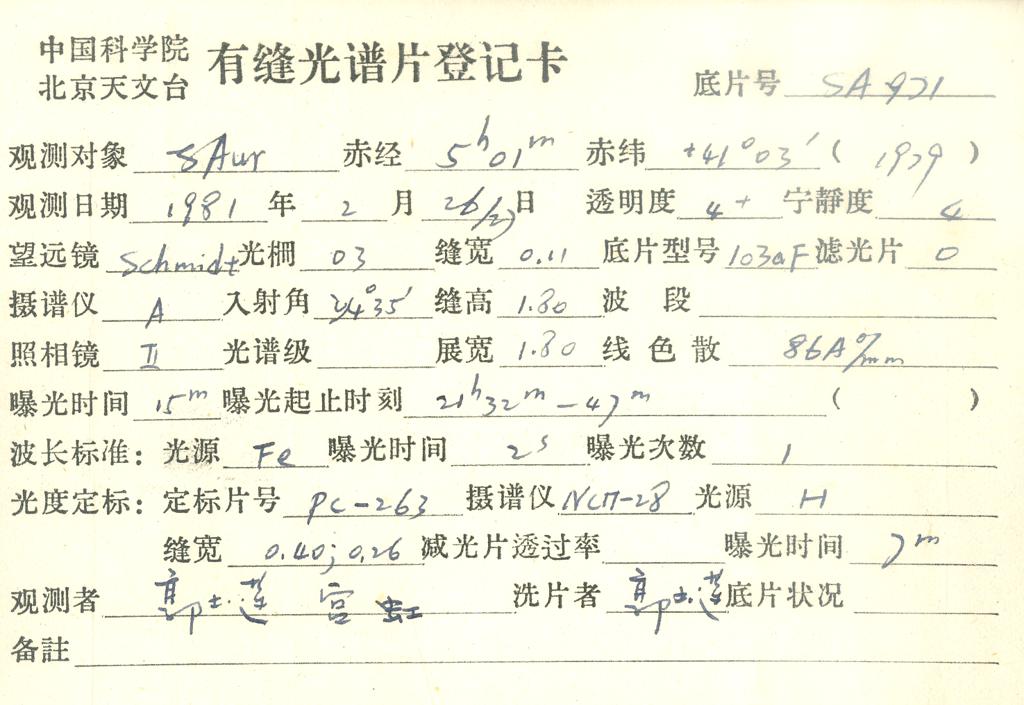 中国科学院
北京天文台
有缝光谱片登记卡
底片号 SA 921
观测对象 SAur 赤经 5h01m 赤纬 +41°03′ ( 1979 )
观测日期 1981 年 2 月 26/27 日 透明度 4+ 宁静度 4
望远镜 Schmidt 光栅 03 缝宽 0.11 底片型号 103aF 滤光片 0
摄谱仪 A 入射角 34°35′ 缝高 1.80 波段
照相镜 II 光谱级 展宽 1.80 线色散 86A°/mm
曝光时间 15m 曝光起止时刻 21h32m-47m ( )
波长标准: 光源 Fe 曝光时间 2s 曝光次数 1
光度定标: 定标片号 PC-263 摄谱仪 ИСП-28 光源 H
缝宽 0.40;0.26 减光片透过率 曝光时间 7m
观测者 郭士莲 宫虹 洗片者 郭士莲 底片状况
备註